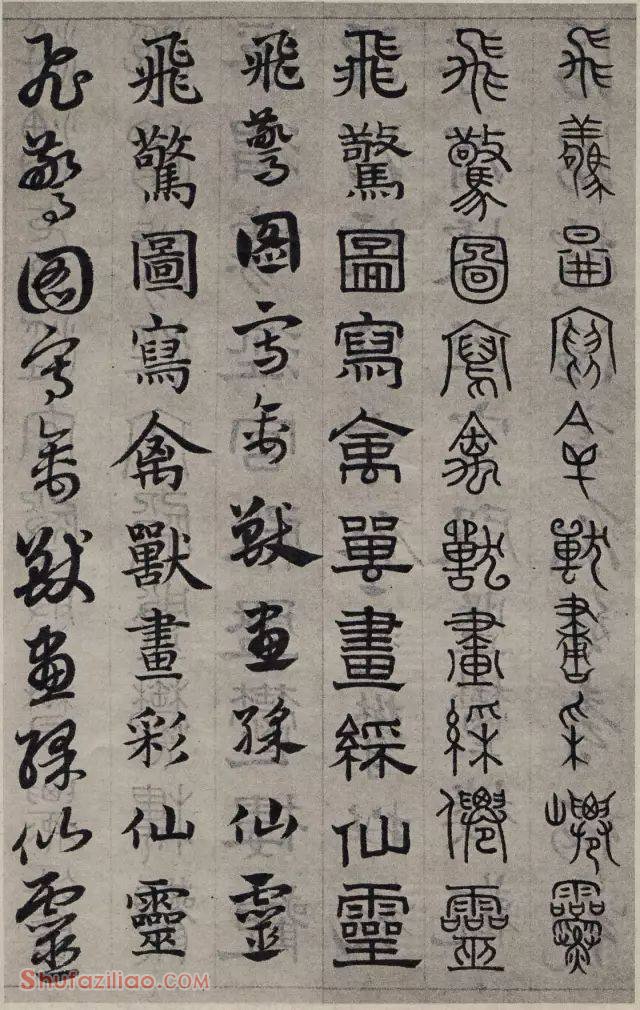 飛驚圖寫禽獸畫采僊靈
飛驚圖寫禽獸畫綵僊靈
飛驚圖寫禽獸畫綵仙靈
飛驚圖寫禽獸畫綵仙靈
飛驚圖寫禽獸畫彩仙靈
飛驚圖寫禽獸畫綵仙靈
Shufaziliao.com